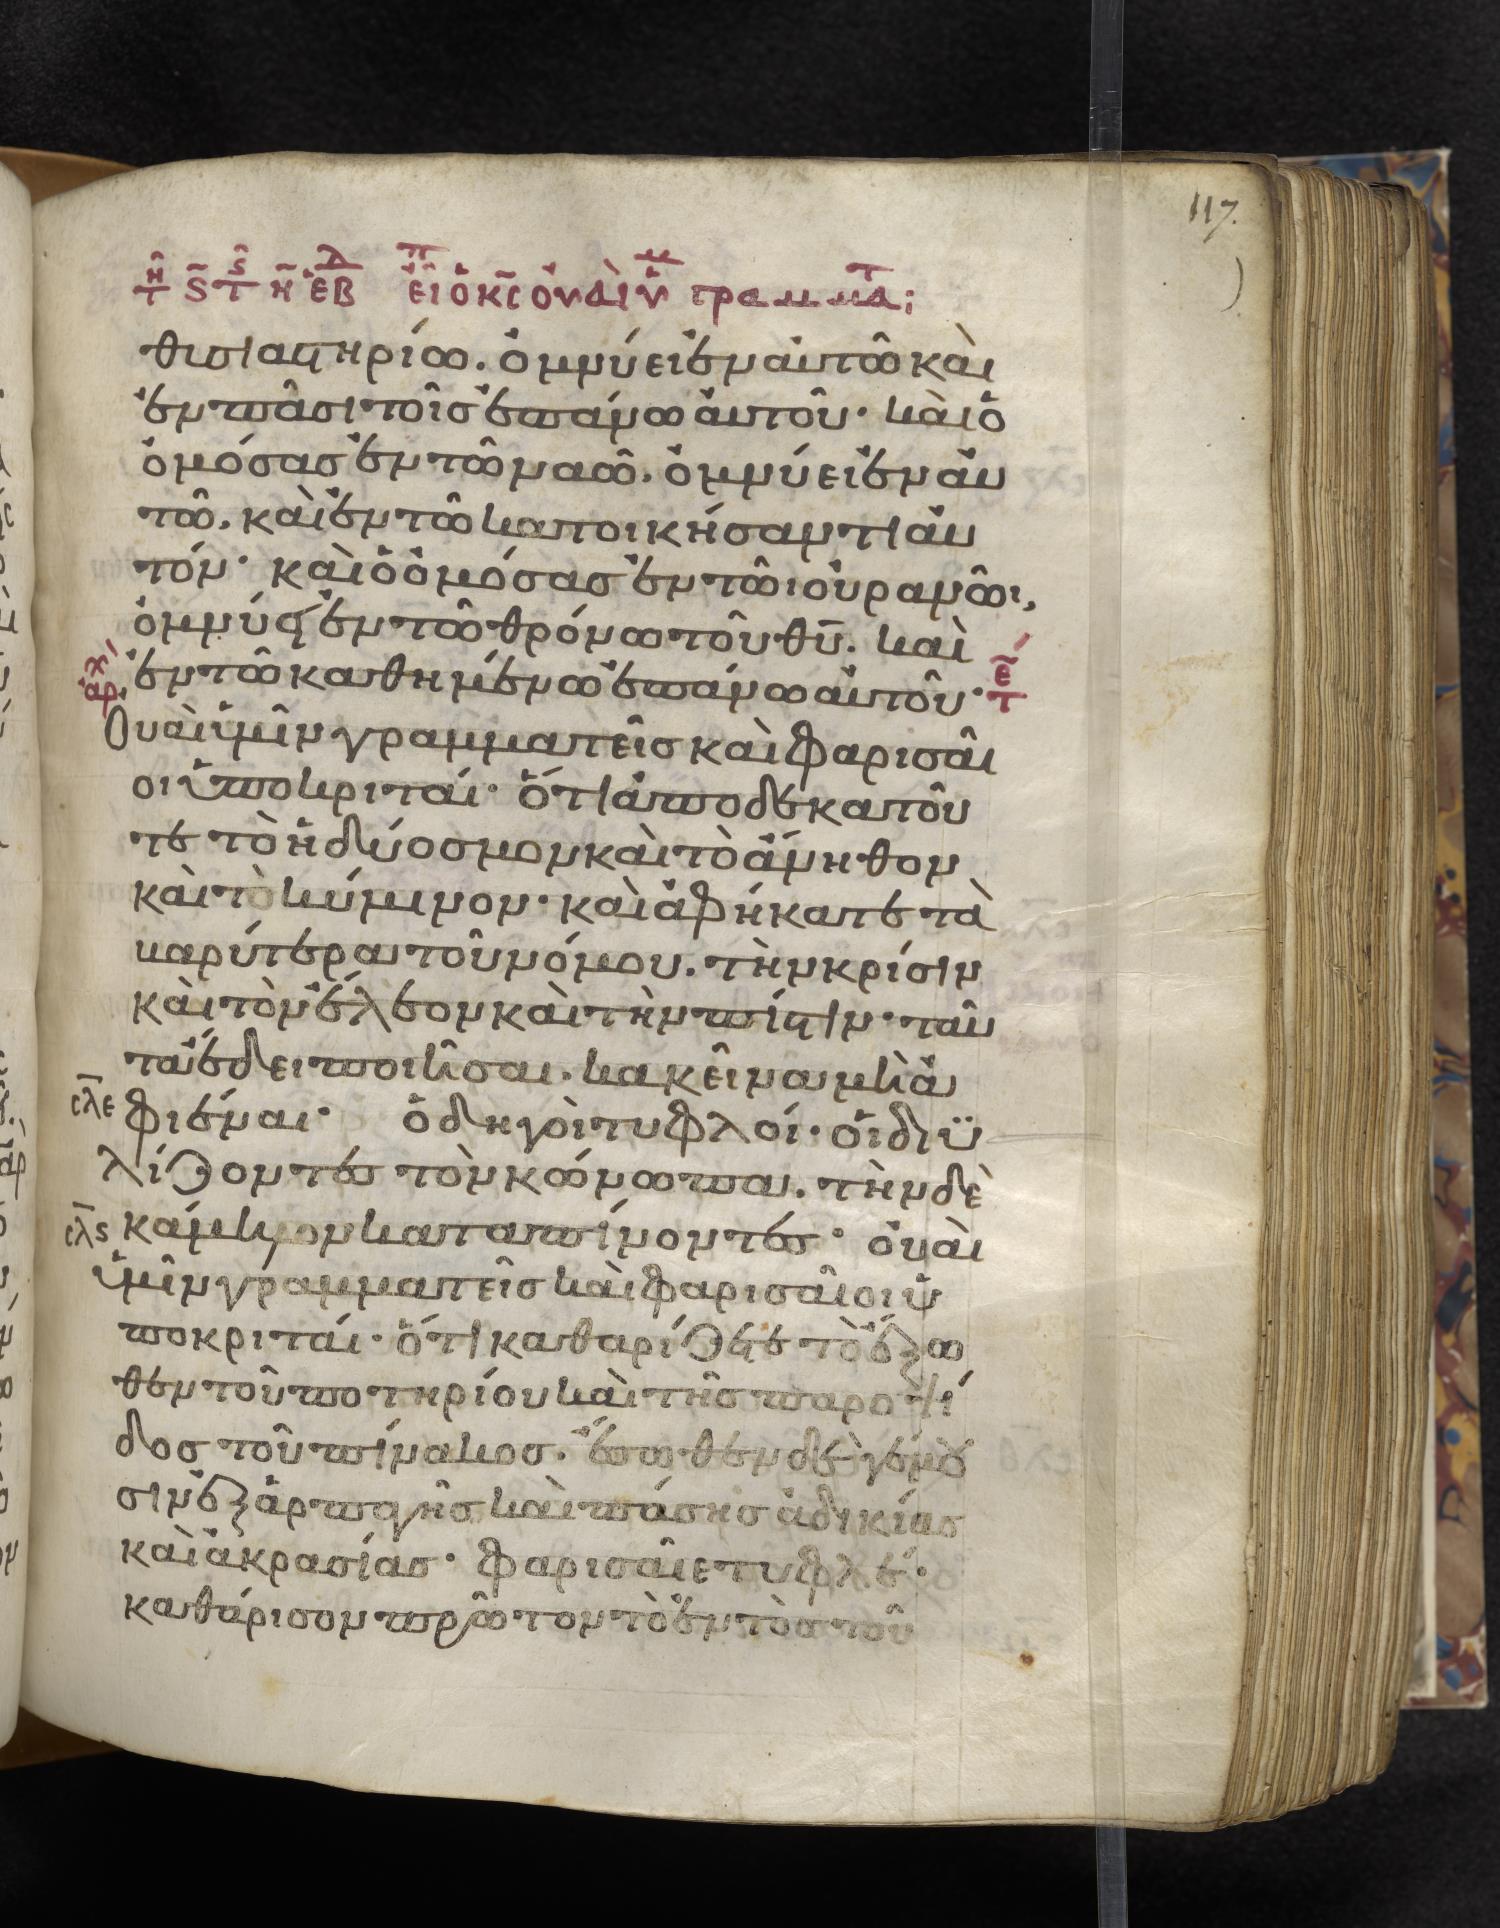 117.
θυσιαστηρίω. ὀμνύει ἐν αὐτῶ καὶ
ἐν πᾶσι τοῖς ἐπάνω αὐτοῦ· καὶ ὁ
ὀμόσας ἐν τῶ ναῶ. ὀμνύει ἐν αὐ
τῶ. καὶ ἐν τῶ κατοικήσαντι αὐ
τόν· καὶ ὁ ὀμόσας ἐν τῶι οὐρανῶι,
ὀμνύει ἐν τῶ θρόνω τοῦ θῡ. καὶ
ἐν τῶ καθημένω ἐπάνω αὐτοῦ·
Οὐαὶ ὑμῖν γραμματεῖς καὶ φαρισαῖ
οι ὑποκριταί· ὅτι ἀποδεκατοῦ
τε τὸ ἡδύοσμον καὶ τὸ ἄνηθον
καὶ τὸ κύμινον· καὶ ἀφήκατε τὰ
βαρύτερα τοῦ νόμου. τὴν κρίσιν
καὶ τὸν ἔλεον καὶ τὴν πίστιν· ταῦ
τα ἔδει ποιῆσαι. κακεῖνα μὴ ἀ
σλε φιέναι· ὁδηγοὶ τυφλοί· οἱ διϋ
λίζοντες τὸν κώνωπα. τὴν δὲ
σλς κάμηλον καταπίνοντες· οὐαὶ
ὑμῖν γραμματεῖς καὶ φαρισαῖοι ὑ
ποκριταί· ὅτι καθαρίζετε τὸ ἔξω
θεν τοῦ ποτηρίου καὶ τῆς παροψί
δος τοῦ πίνακος. ἔσωθεν δὲ γέμου
σιν ἐξ ἁρπαγῆς καὶ πάσης ἀδικίας
καὶ ἀκρασίας· φαρισαῖε τυφλέ·
καθάρισον πρῶτον τὸ ἐντὸς τοῦ